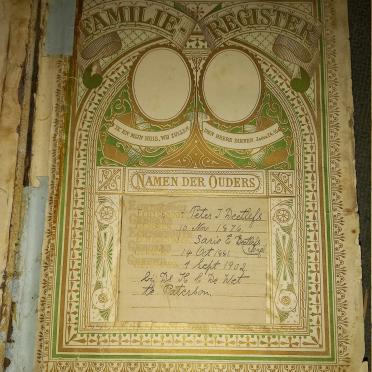 FAMILIE-REGISTER
IK EN MIJN HUIS, WIJ ZULLEN DEN HEERE DIENEN.
NAMEN DER OUDERS
Peter J Deetlefs
10 Nov 1876
Sarie E Deetlefs
14 Oct 1881
1 Sept 1902
bij Ds H C De Wet
te Paterson.